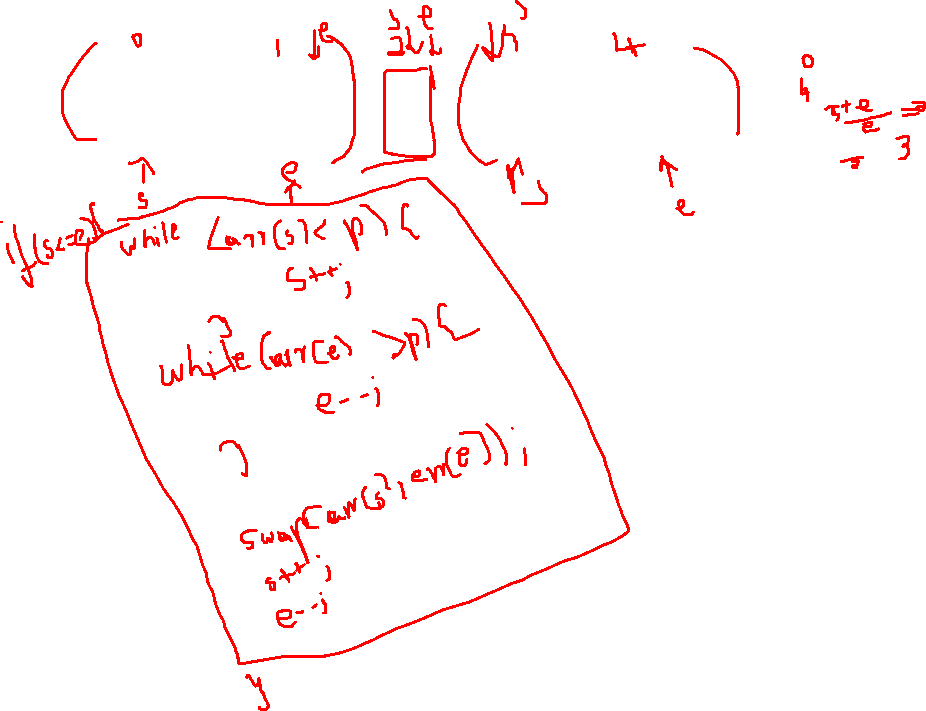 0 1 e e 4 0
4
s+e
e
3
s e p s e
if(s<=e){
while (arr(s)< p) {
s++;
}
while (arr[e) >p) {
e--;
}
swap(arr(s), err(e));
s++;
e--;
}